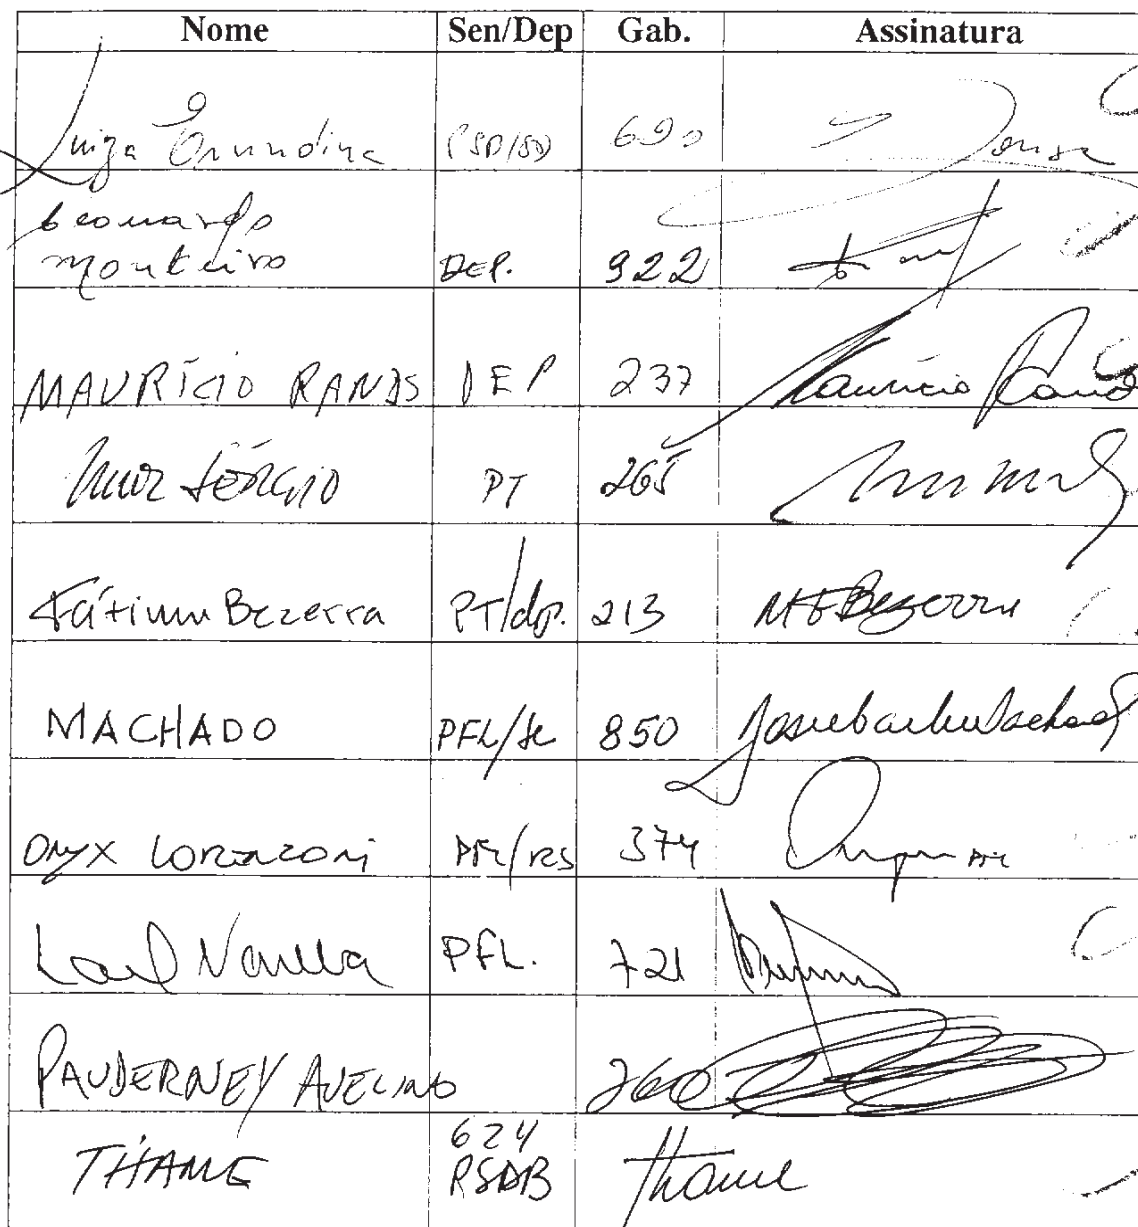 Nome Sen/Dep Gab. Assinatura
Luiza Erundina 690
Leonardo
Monteiro DEP. 922
MAURÍCIO RANDS DEP 237 Maurício Rands
Luiz SÉRGIO PT 265
Fátima Bezerra PT/dep. 213 MFBezerra
MACHADO PFL/SE 850
Onyx LORENZONI PFL/RS 374
PFL. 721
PAUDERNEY AVELINO 260
THAME 624 Thame
PSDB